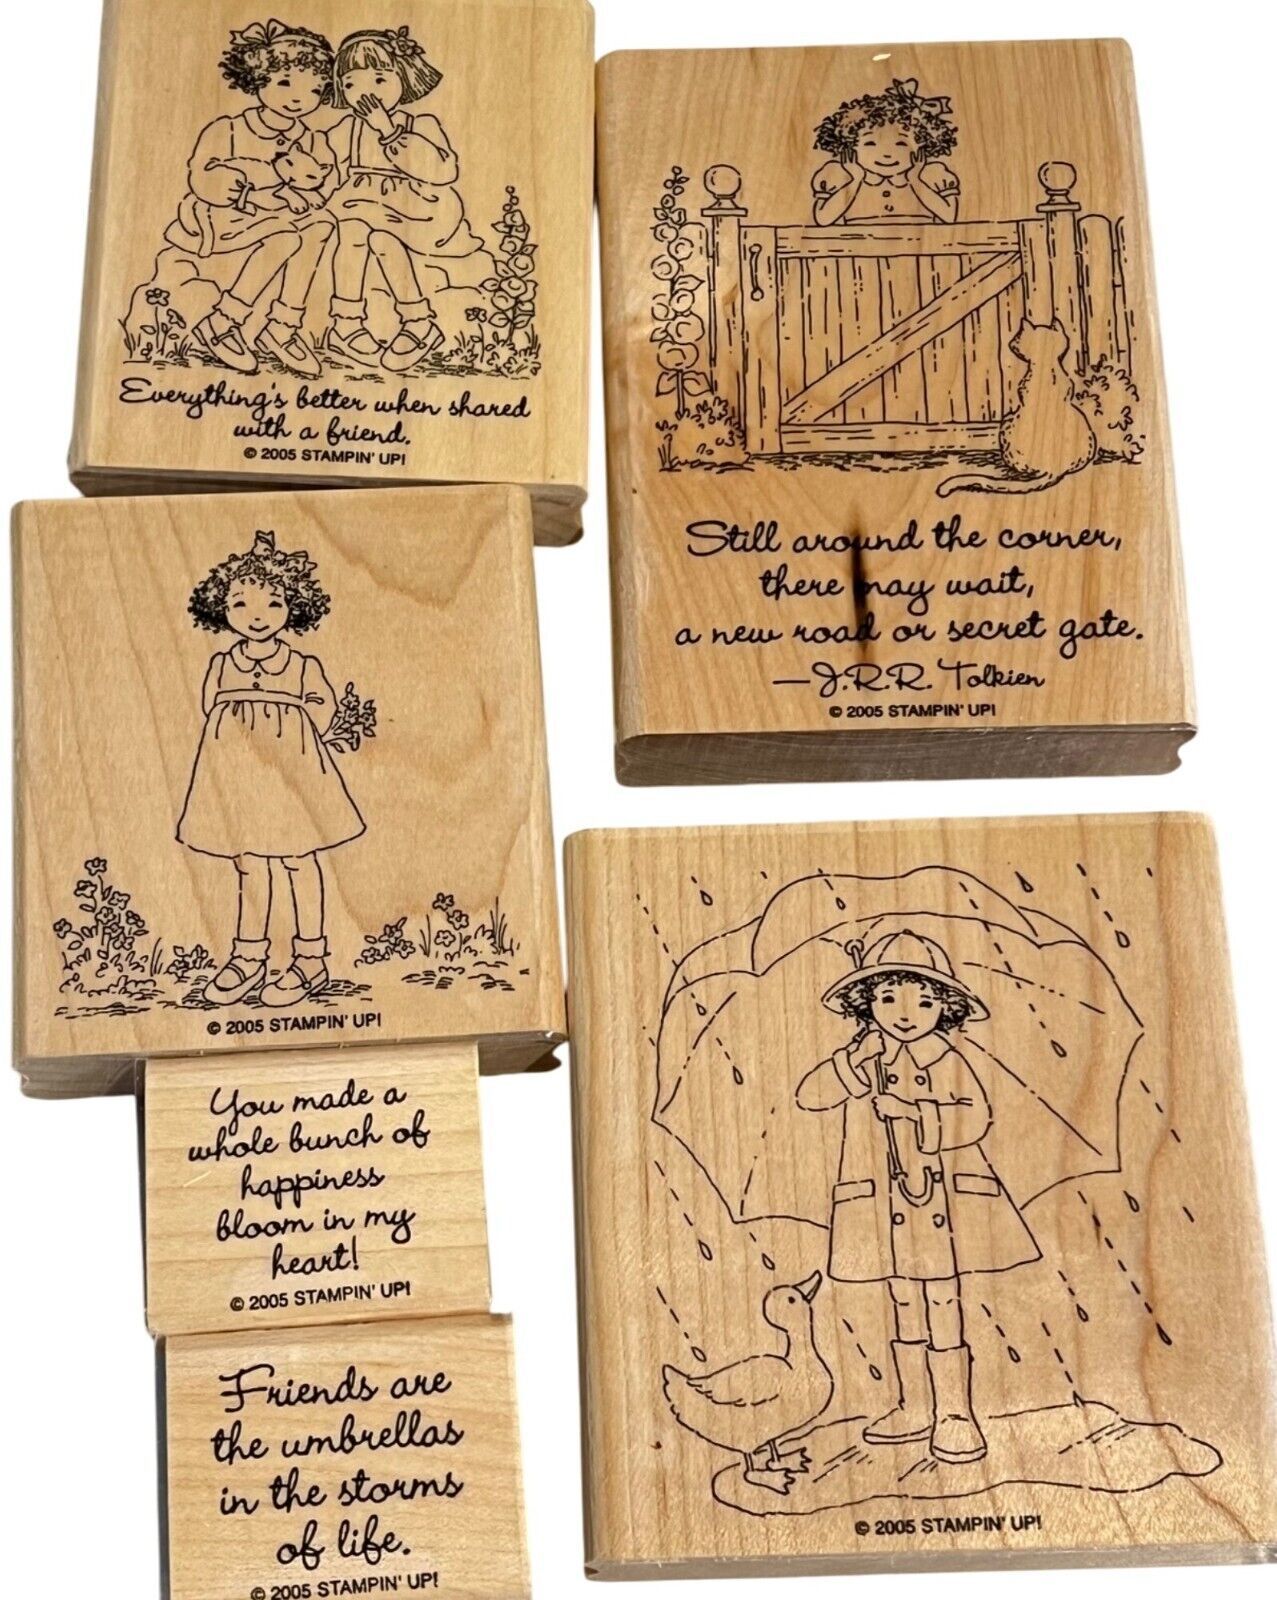 Everything's better when shared
with a friend.
© 2005 STAMPIN' UP!
Still around the corner,
there may wait,
a new road or secret gate.
—J.R.R. Tolkien
© 2005 STAMPIN' UP!
© 2005 STAMPIN' UP!
You made a
whole bunch of
happiness
bloom in my
heart!
© 2005 STAMPIN' UP!
Friends are
the umbrellas
in the storms
of life.
© 2005 STAMPIN' UP!
© 2005 STAMPIN' UP!